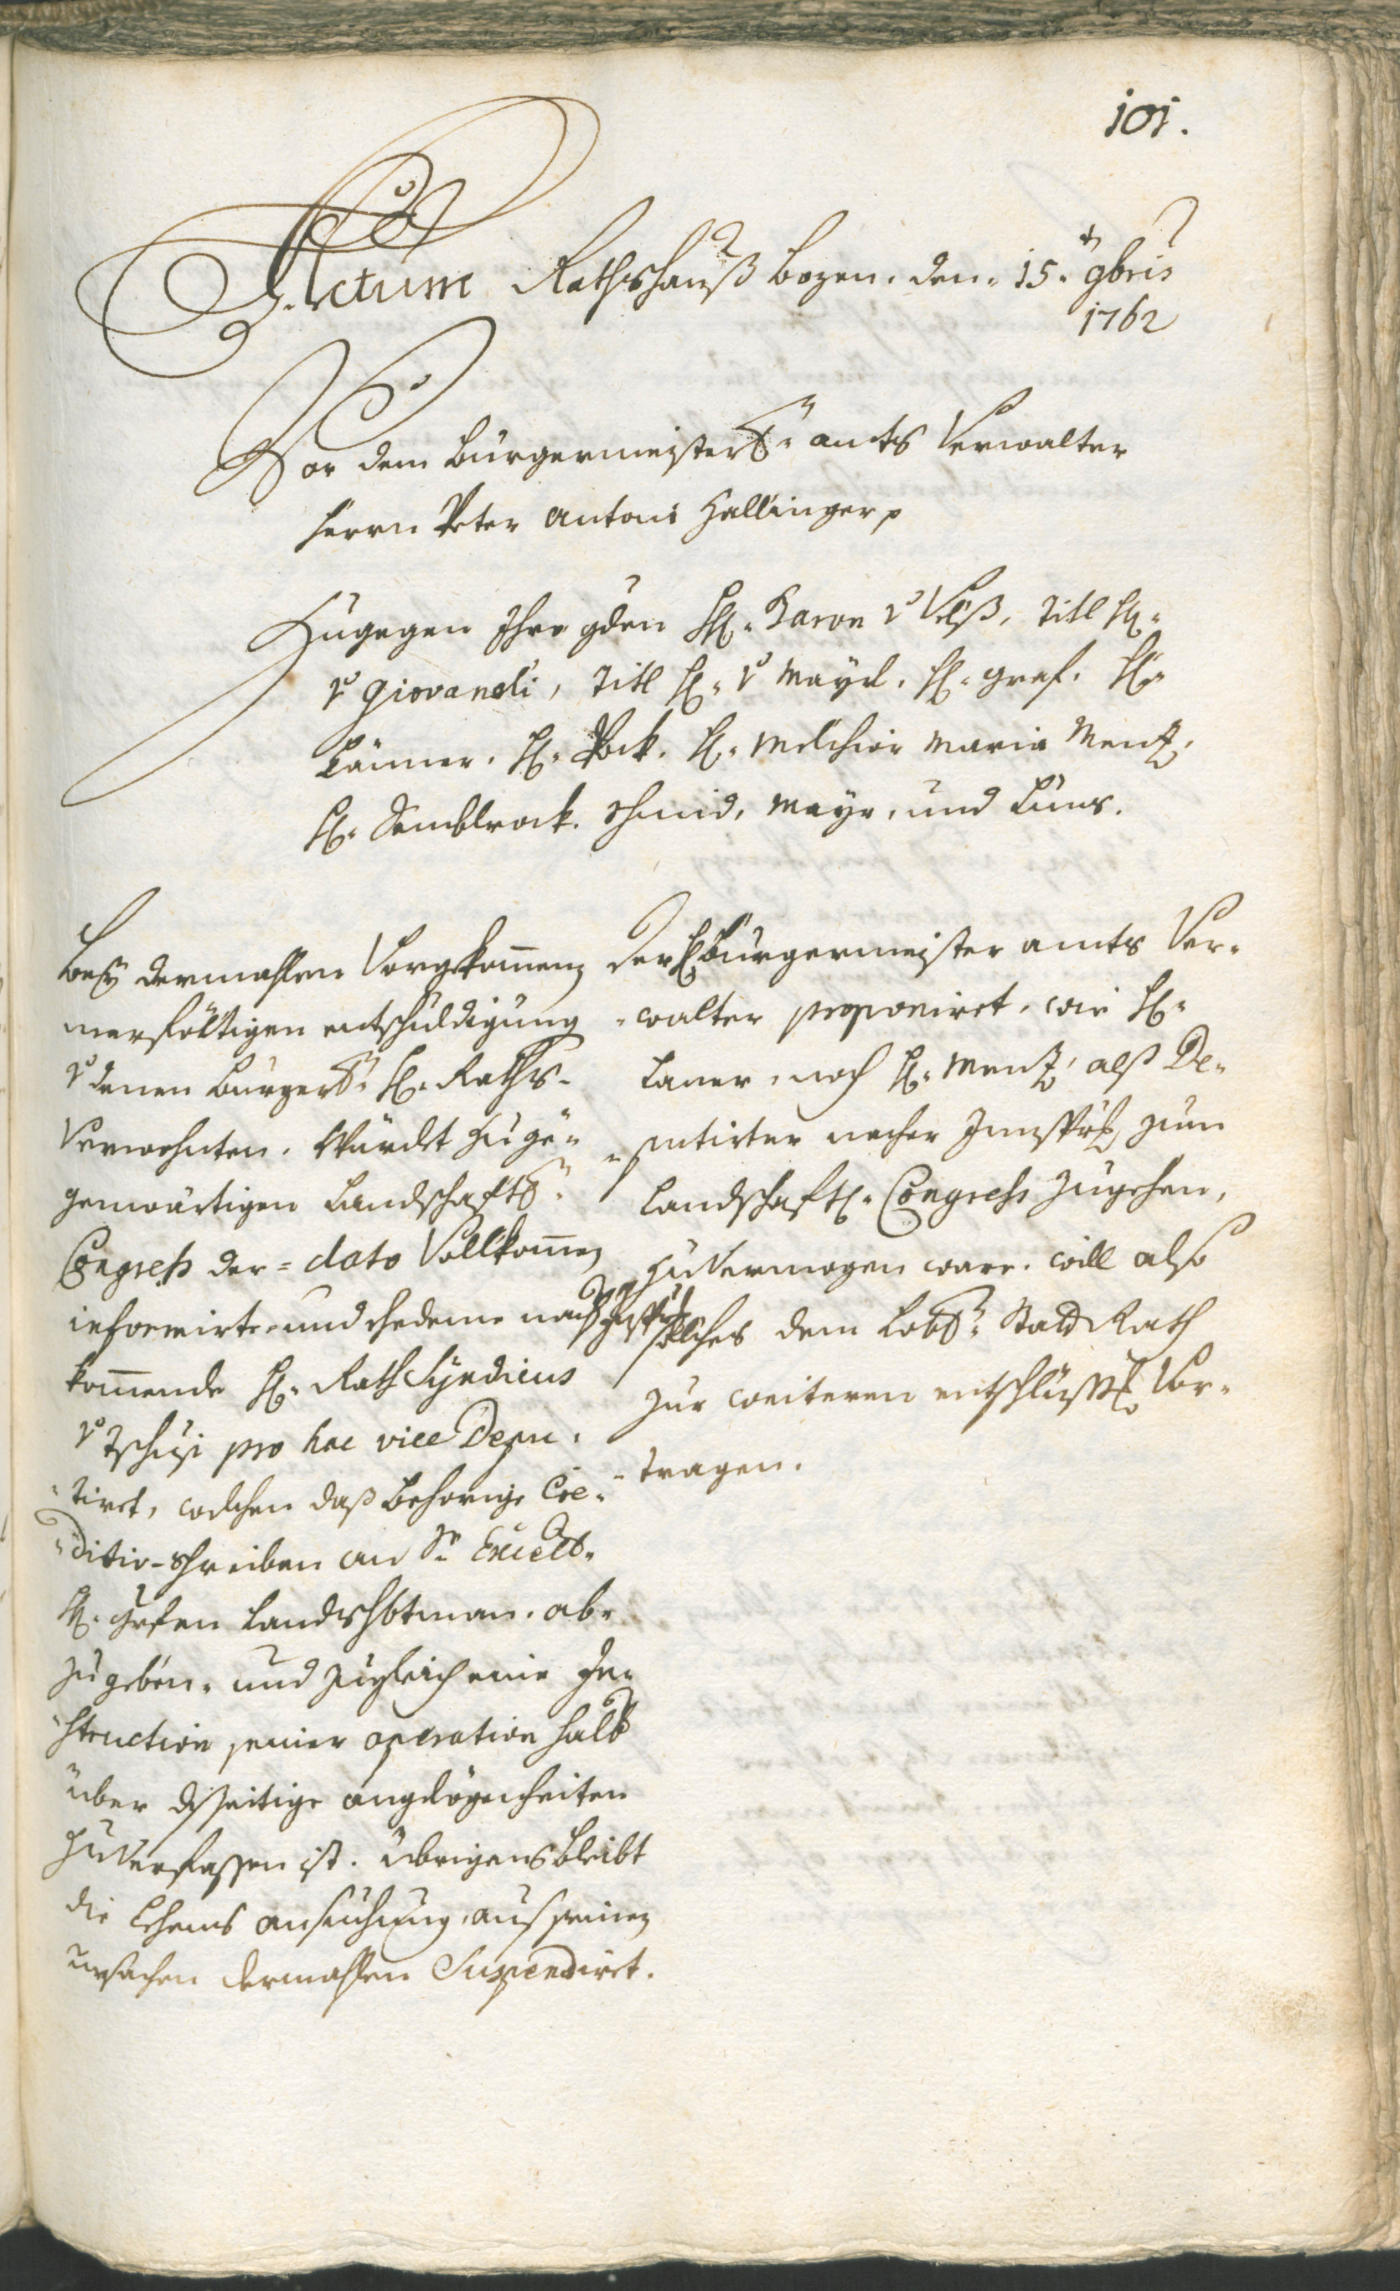 101.
Actum Rathshauß Bozen. den. 15.t 9bris
1762
Vor dem Burgermeister amts Verwalter
herrn Peter Antoni Hallinger
Zugegen Ihro gden H. Baron v Velß, Titl H.
v Giovaneli, Titl H. v Mayrl. H. Graf. H.
Lämer. H. Pock. H. Melchior Maria Menz,
H. Semblrock. Schmid, Mayr, und Kuns.
Bey dermahlen Vorgekomenen
mehrföltigen entschuldigung
v denen Burgerl. H. Raths-
Verwohnten. Würdet zu ge-
genwärtigen Landschaftl.
Congress der- dato Vollkomen
informirte und ehedeme nach Insprug
komende H. Rath Syndicus
v Tschusi pro hac vice Depu-
-tirt, welchen daß behörige Cre-
-ditiv-schreiben an Sr Excell.
H. Grafen Landtshbtman. ab-
zugeben. und zugleich eine In-
struction seiner operation halb
über disseitige angelögenheiten
zu Verfassen ist. übrigens bleibt
die Lehens ansuchung, auß seinen
ursachen dermahlen Suspendirt.
Der H. Burgermeister amts Ver-
-walter proponiret, wie H.
Laner, noch H. Menz, alß De-
-putirter nacher Insprugg zum
Landschaftl. Congress zugehen,
zu Vermogen ware. will also
solches dem Lobl. Stadt Rath
zur weiteren entschlüssung Vor-
-tragen.